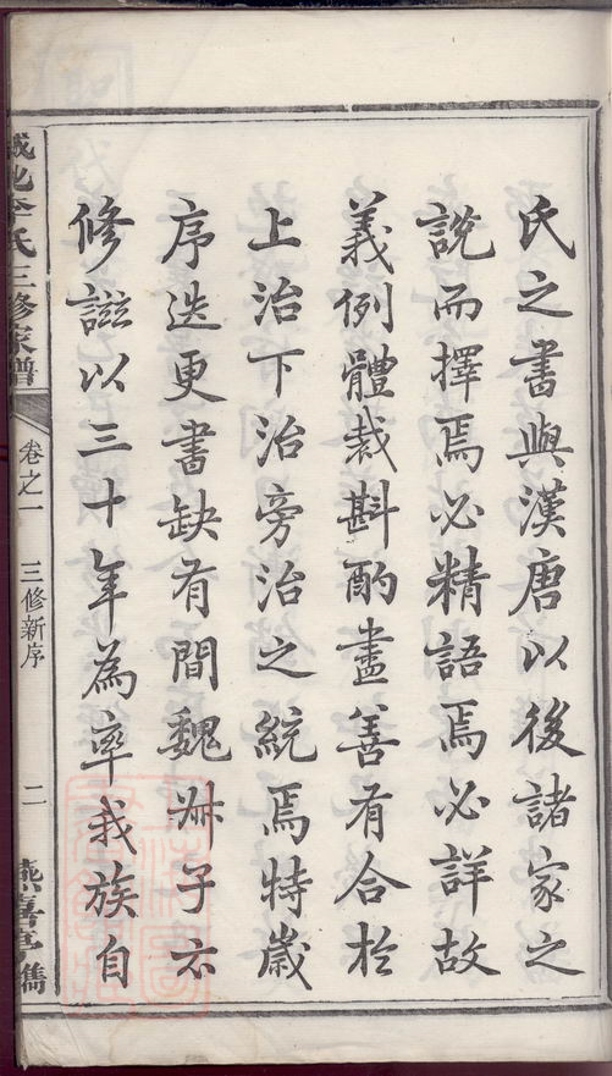 氏之書與漢唐以後諸家之
說而擇焉必精語焉必詳故
義例體裁斟酌盡善有合於
上治下治旁治之統焉特歲
序迭更書缺有間魏叔子亦
修譜以三十年為率我族自
北李氏三修家譜
卷之一
三修新序
二
燕喜亭鐫